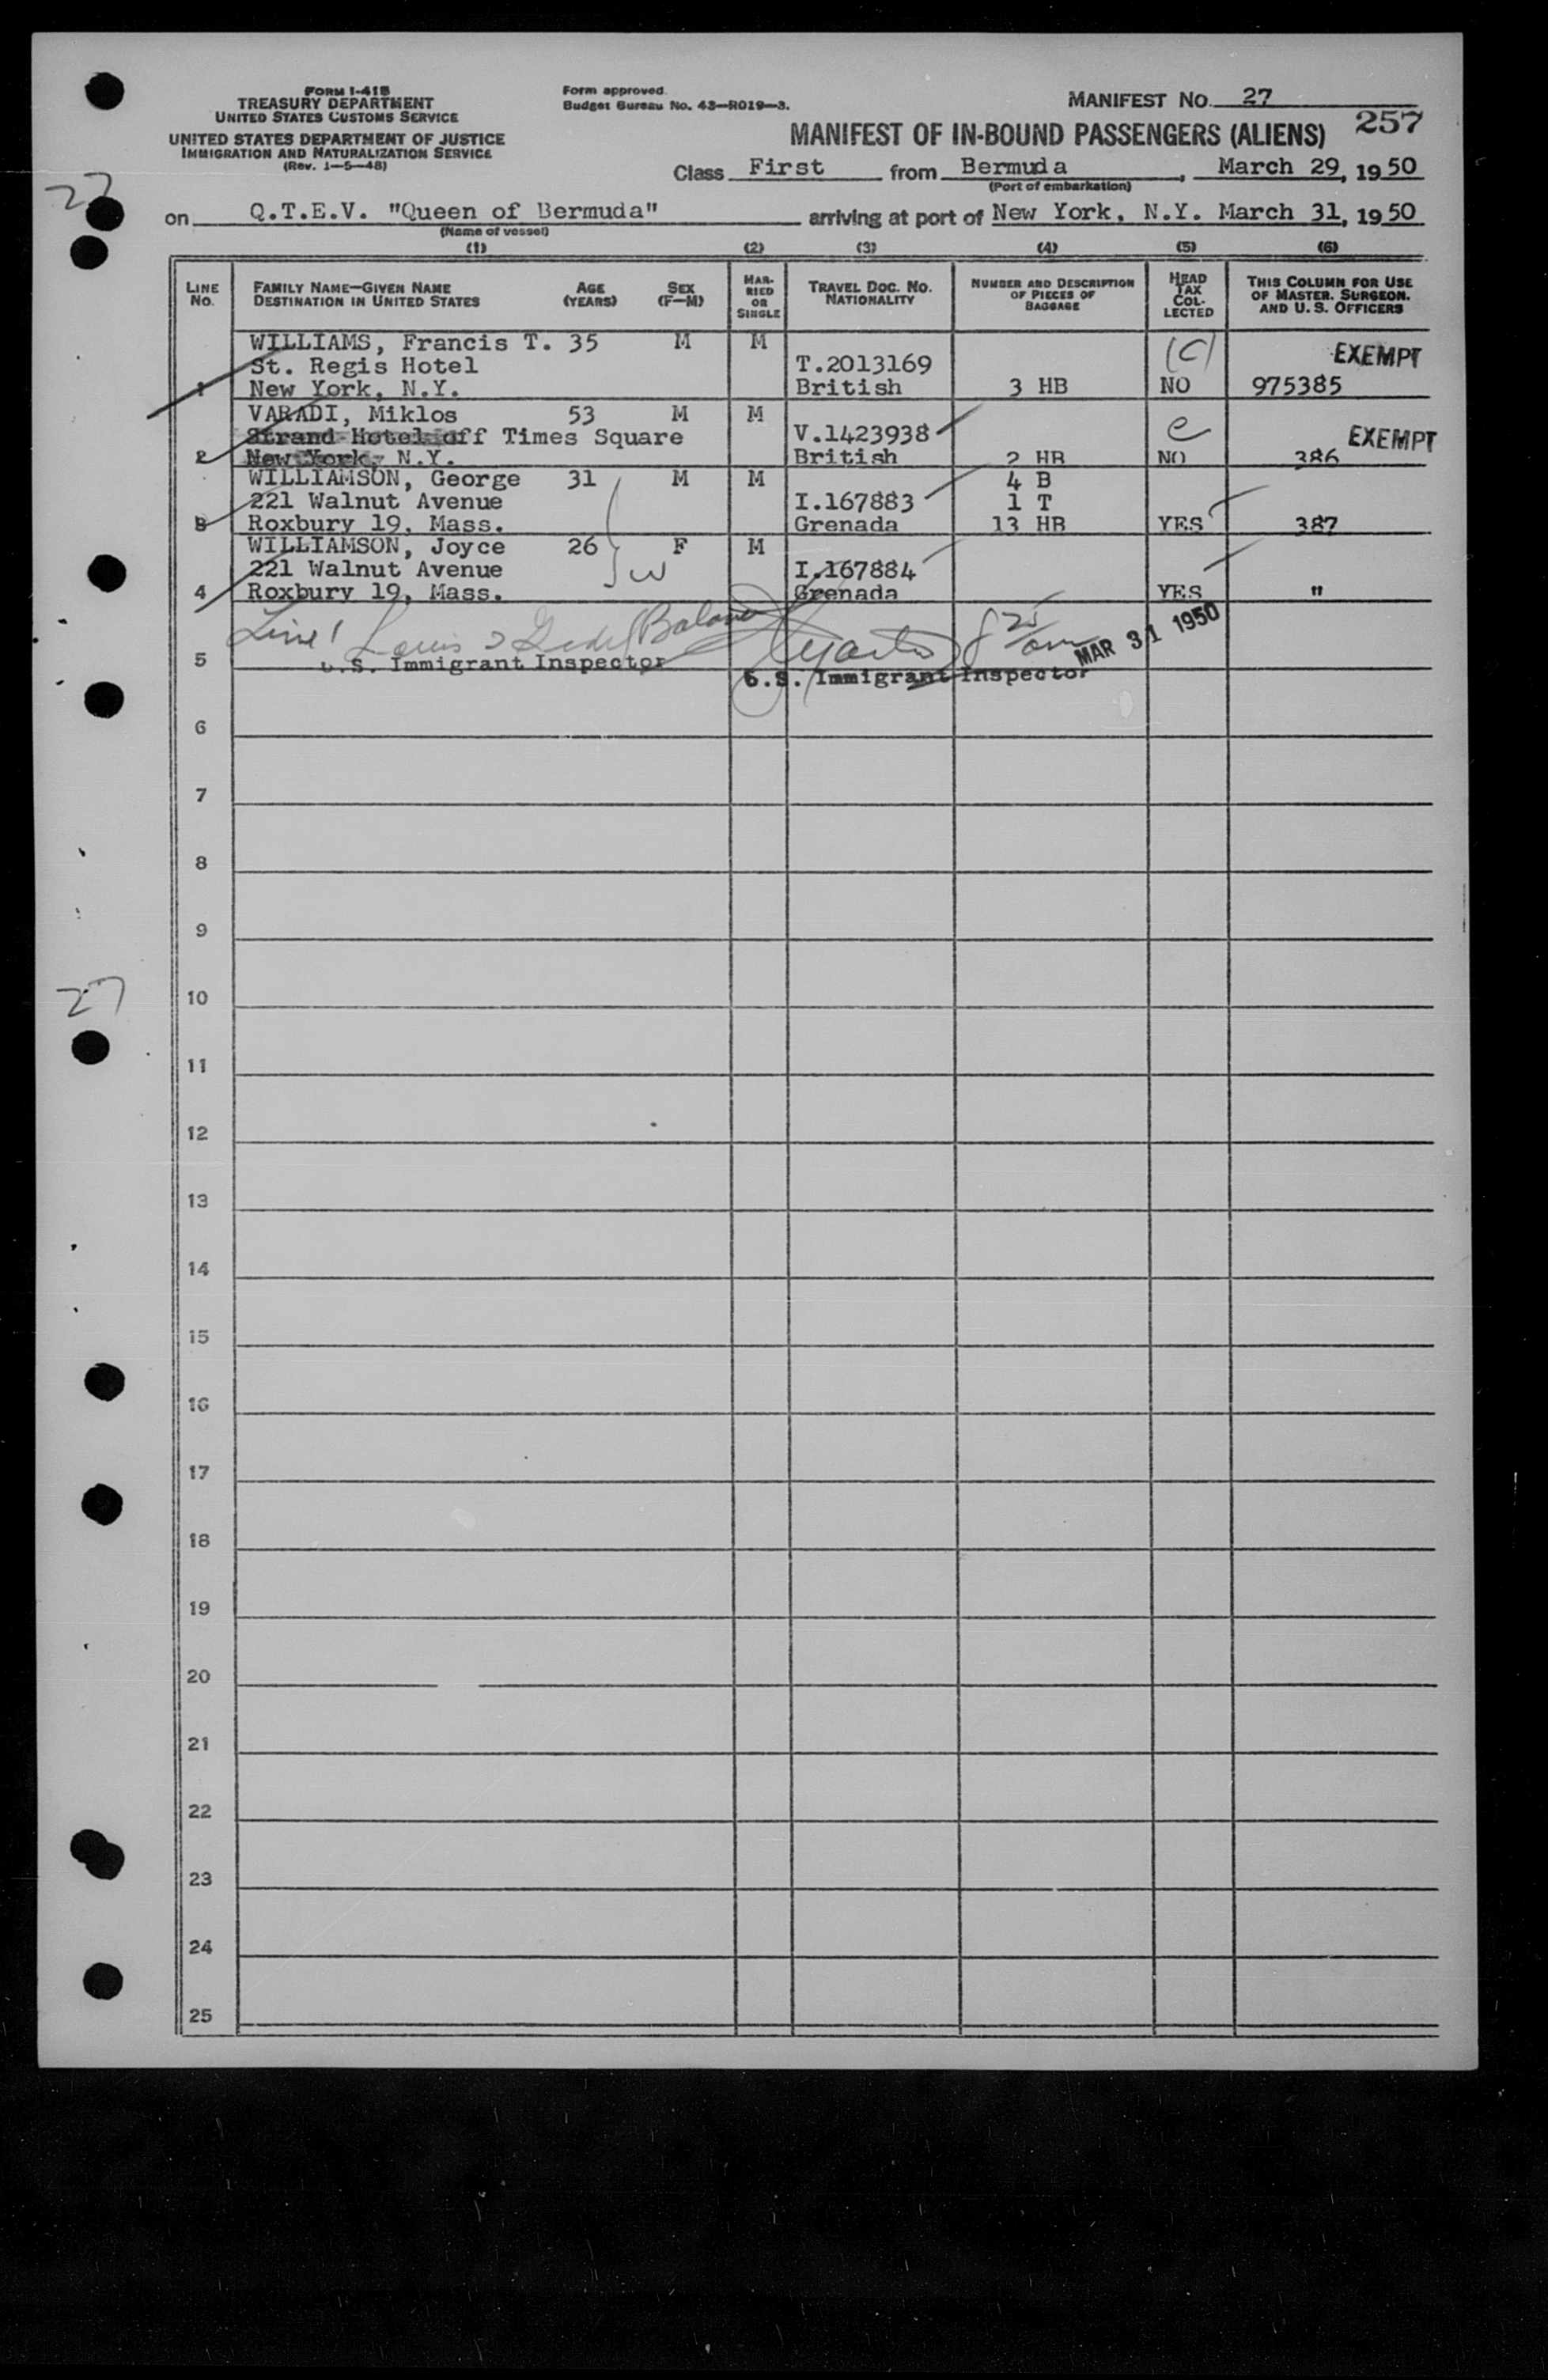 FORM I-418
TREASURY DEPARTMENT
UNITED STATES CUSTOMS SERVICE
UNITED STATES DEPARTMENT OF JUSTICE
IMMIGRATION AND NATURALIZATION SERVICE
(Rev. 1-5-48)
Form approved.
Budget Bureau No. 43-R019-3.
MANIFEST NO. 27
257
MANIFEST OF IN-BOUND PASSENGERS (ALIENS)
Class First from Bermuda, March 29, 1950
(Port of embarkation)
27
on Q.T.E.V. "Queen of Bermuda" arriving at port of New York, N.Y. March 31, 1950
(Name of vessel)
(1) (2) (3) (4) (5) (6)
LINE NO. FAMILY NAME—GIVEN NAME DESTINATION IN UNITED STATES AGE (YEARS) SEX (F—M) MARRIED OR SINGLE TRAVEL DOC. NO. NATIONALITY NUMBER AND DESCRIPTION OF PIECES OF BAGGAGE HEAD TAX COLLECTED THIS COLUMN FOR USE OF MASTER, SURGEON, AND U. S. OFFICERS
WILLIAMS, Francis T. 35 M M (C) EXEMPT
St. Regis Hotel T.2013169
1 New York, N.Y. British 3 HB NO 975385
VARADI, Miklos 53 M M
Strand Hotel off Times Square V.1423938 e EXEMPT
2 New York, N.Y. British 2 HB NO 386
WILLIAMSON, George 31 M M 4 B
221 Walnut Avenue I.167883 1 T
3 Roxbury 19, Mass. Grenada 13 HB YES 387
WILLIAMSON, Joyce 26 F M
221 Walnut Avenue w I.167884
4 Roxbury 19, Mass. Grenada YES "
Line 1 Louis Balance 8 25 am MAR 31 1950
5 U.S. Immigrant Inspector
U.S. Immigrant Inspector
6
7
8
9
27
10
11
12
13
14
15
16
17
18
19
20
21
22
23
24
25